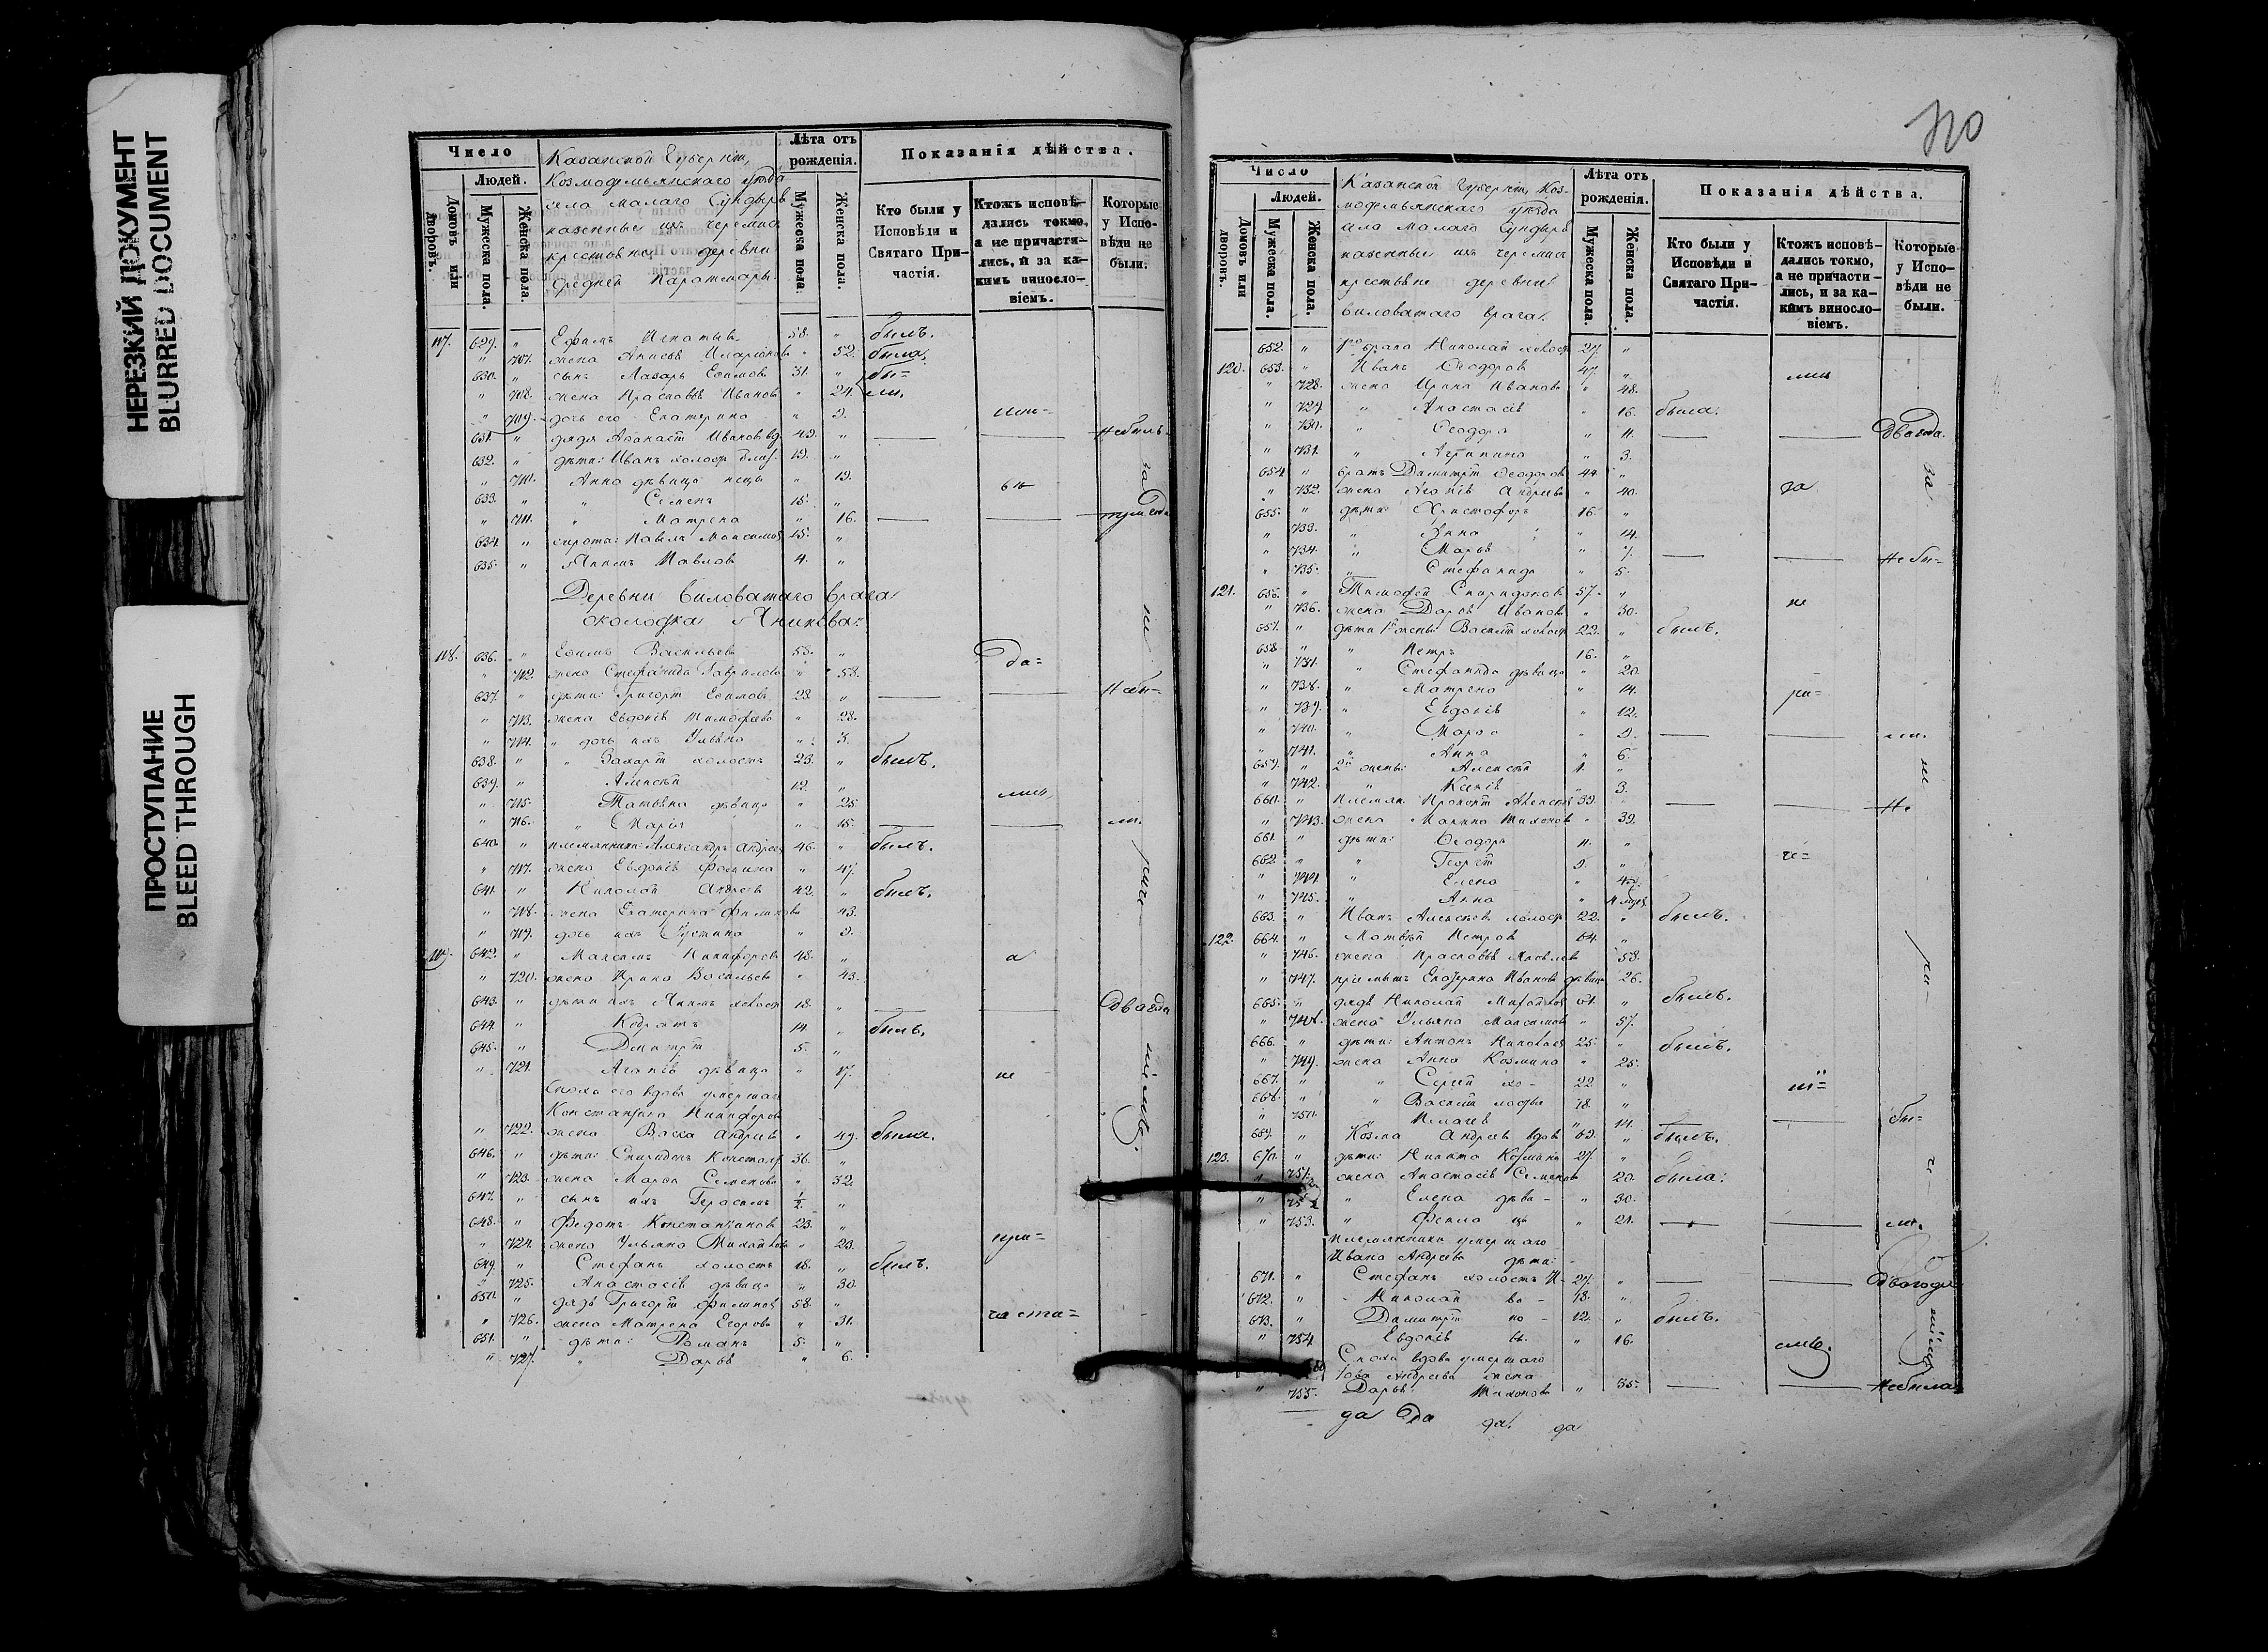 НЕРЕЗКИЙ ДОКУМЕНТ
BLURRED DOCUMENT
ПРОСТУПАНИЕ
BLEED THROUGH
Число
Людей.
Домовъ или дворовъ.
Мужеска пола.
Женска пола.
Казанской Губерніи,
Козмодемьянскаго уѣзда
села Малаго Сундыря
казенные изъ черемисъ
крестьяне, деревни
Средней
Лѣта отъ рожденія.
Мужеска пола.
Женска пола.
Показанія дѣйства.
Кто были у Исповѣди и Святаго Причастія.
Ктожъ исповѣдались токмо, а не причастились, и за какимъ винословіемъ.
Которые у Исповѣди не были.
117. 629. " Ефимъ Игнатьевъ 58. " былъ.
" 707. жена Анисья Иларіонова " 52. была.
630. " сынъ Лазарь Ефимовъ 31. " бы=
" 708. жена Прасковья Иванова " 24. ли.
" 709. дочь его Екатерина " 9.
631. " дядя Иванов вд. 49. " Небылъ
632. " дѣти: Иванъ холост 19. "
" 710. Анна дѣвица " 19.
633. " " Семенъ 18. "
" 711. " Матрена " 16. три года
634. " сирота: Павелъ Максимов 15. "
635. " Якимъ Павлов 4. "
Деревни Виловатаго врага
околодка Яникова:
118. 636. " Ефимъ Васильевъ 55. " да=
" 712. жена Стефанида Гаврилова " 58.
637. " дѣти: Григорій Ефимовъ 28. " Небы=
" 713. жена Евдокія Тимофеева " 28.
" 714. " дочь ихъ Ульяна " 3.
638. " " Захаръ холостъ 23. " былъ.
639. " Алексѣй 12. "
" 715. Татьяна дѣвица " 25
" 716. " Марія " 15. ли.
640. " племянники: Александръ Андреев 46. " былъ.
" 717. жена Евдокія Фомина " 47.
641. " Николай Андреевъ 42. " былъ.
" 718. жена Екатерина Филипова " 43.
" 719. дочь ихъ Устина " 9.
119. 642. " Максимъ Никифоров 48. "
" 720. жена Ирина Васильева " 43.
643. " дѣти ихъ Якимъ холост 18. " Два года
644. " Кодратъ 14. " былъ.
645. " Дмитрій 5. "
" 721. Агафія дѣвица " 17. не
Сноха его вдова умершаго
Константина Никифорова
" 722. жена Васса Андреева " 49. была.
646. " дѣти: Спиридонъ Констант. 36. "
" 723. жена Марѳа Семенова " 32.
647. " сынъ ихъ Герасимъ ½. "
648. " Федотъ Константинов 23. "
" 724. жена Ульяна Михайлова " 23. при=
649. " Стефанъ холостъ 18. " былъ.
" 725. Анастасія дѣвица " 30.
650. " дядя Григорій Филипов 58. "
" 726. жена Матрена Егорова " 31. часта=
651. " дѣти: Романъ 5. "
" 727. " Дарья " 6.
Число
Людей.
Домовъ или дворовъ.
Мужеска пола.
Женска пола.
Казанской Губерніи, Коз-
модемьянскаго уѣзда
села Малаго Сундыря
казенные изъ черемисъ
крестьяне деревни
Виловатаго врага.
Лѣта отъ рожденія.
Мужеска пола.
Женска пола.
Показанія дѣйства.
Кто были у Исповѣди и Святаго Причастія.
Ктожъ исповѣдались токмо, а не причастились, и за какимъ винословіемъ.
Которые у Исповѣди не были.
652. " Николай холост 27. "
120. 653. " Иванъ Ѳеодоров 47. "
" 728. жена Ирина Иванова " 48.
" 729. " Анастасія " 16. была.
" 730. " Ѳеодора " 11. Два года.
" 731. " Агрипина " 3.
654. " братъ Димитрій Ѳеодоров 44 "
" 732. жена Агафія Андреева " 40. за
655. " дѣти: Христофоръ 16. "
" 733. " Анна " 14.
" 734. " Марья " 7. Не бы=
" 735. " Стефанида " 5.
121. 656. " Тимофей Спиридонов 57. "
" 736. жена Дарья Иванова " 30. не
657. " дѣти 1й жены: Василій холост 22. " былъ.
658. " " Петръ 16. "
" 737. " Стефанида дѣвица " 20.
" 738. " Матрена " 14. ра=
" 739. " Евдокія " 12.
" 740. " Марѳа " 9. ли.
" 741. " Анна " 6.
659. " 2й жены: Алексѣй 1. "
" 742. " Ксенія " 3.
660. " племян. Прокопій Алексѣев 39. " Не
" 743. жена Марина Тихонова " 39.
661. " дѣти: Ѳеодоръ 11. "
662. " " Георгій 9. " че=
" 744. " Елена "
" 745. " Анна "
663. " Иванъ Алексѣевъ холост 22. " былъ.
122. 664. " Матвѣй Петров 64. "
" 746. жена Прасковья Яковлева " 58.
" 747. пріемышъ Екатерина Иванова дѣвица 26.
665. " дядя Николай Михайлов 61. " былъ.
" 748. жена Ульяна Максимова " 57.
666. " дѣти: Антонъ Николаев 25. " былъ.
" 749. жена Анна Козмина " 25.
667. " " Сергій хо- 22. "
668. " " Василій лосты 18. "
" 750. " Пелагея " 14. бы=
669. " Козма Андреев вдов 69. " былъ.
123. 670. " дѣти: Никита Козмин 27. "
" 751. жена Анастасія Семенова 20. была:
" 752 " Елена дѣви- " 30.
" 753. " Фекла цы " 21. ли.
племянники умершаго
Ивана Андреева дѣти:
671. " Стефанъ холостъ 27. " Двагода
672. " Николай 18. "
673. " Димитрій 12. " былъ.
" 754 Евдокія " 16.
Сноха вдова умершаго
Андреева жена
" 755. Дарья Тихонова " 35. Небыла
да Два да! да